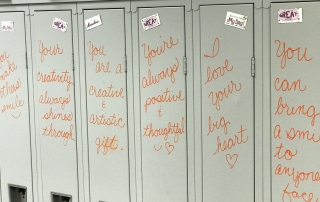 You
make
others
smile
Your
creativity
always
shines
through
You
are a
creative
&
artistic
gift.
You're
always
positive
&
thoughtful
I
love
your
big
heart
You
can
bring
a smile
to
anyone's
face